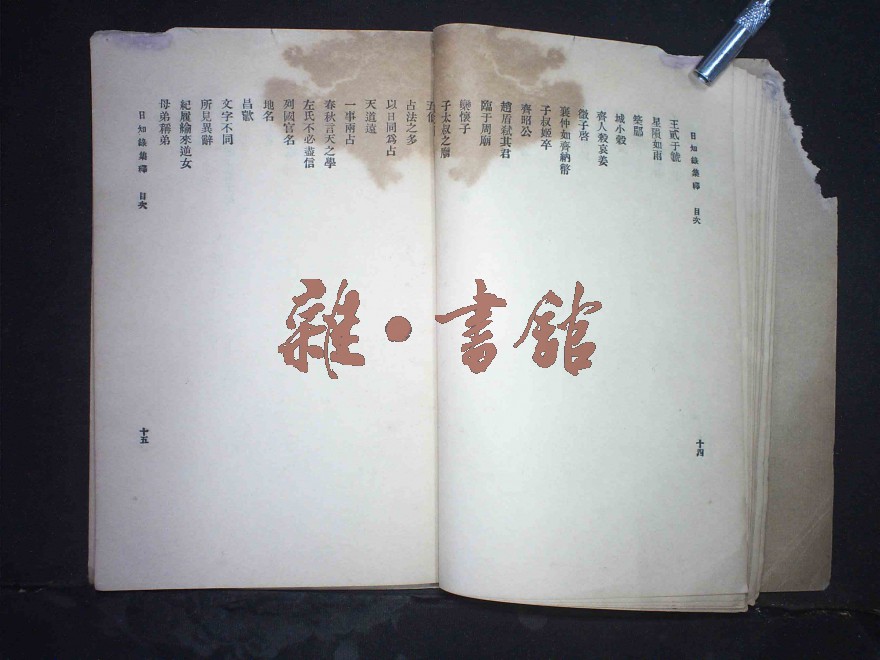 日知錄集釋 目次
十四
王貳于虢
星隕如雨
築郿
城小穀
齊人殺哀姜
微子啓
襄仲如齊納幣
子叔姬卒
齊昭公
趙盾弒其君
臨于周廟
欒懷子
子太叔之廟
占法之多
以日同爲占
天道遠
一事兩占
春秋言天之學
左氏不必盡信
列國官名
地名
昌歜
文字不同
所見異辭
紀履緰來逆女
母弟稱弟
日知錄集釋 目次
十五
雜·書館